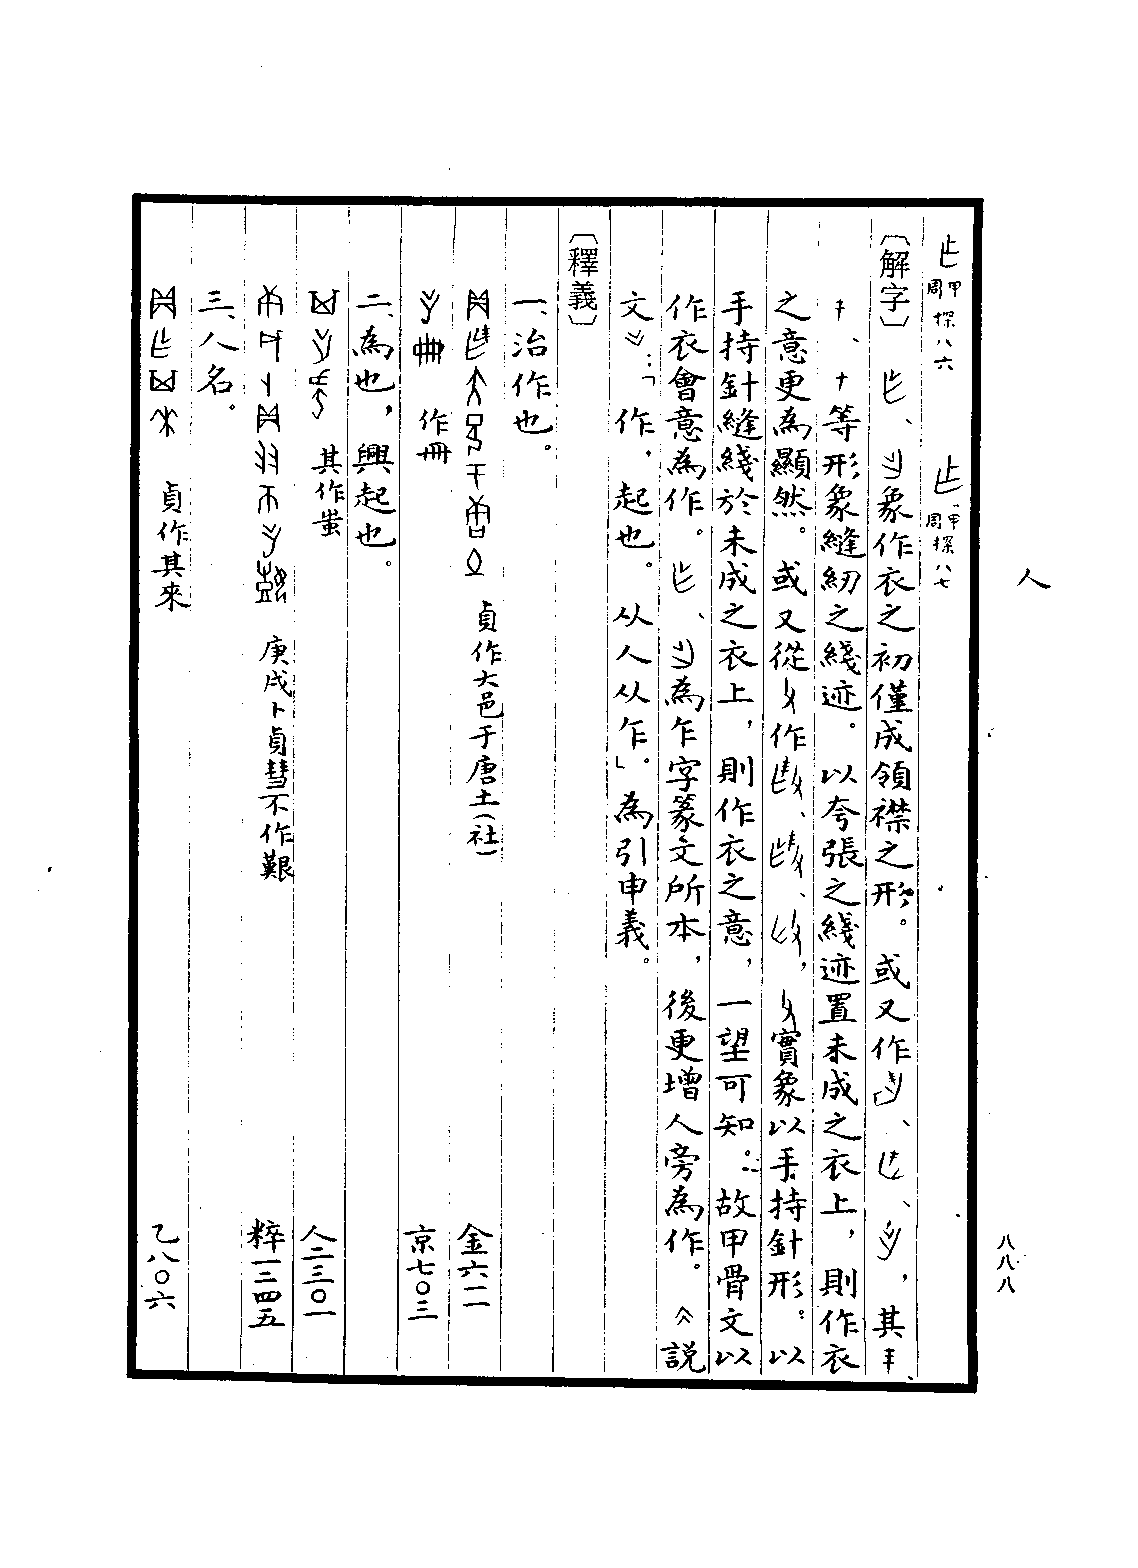 人
八八八
周甲探八六 周甲探八七
〔解字〕 、象作衣之初僅成領襟之形。或又作、、，其
、等形象縫紉之綫迹。以夸張之綫迹置未成之衣上，則作衣
之意更為顯然。或又從作、、，實象以手持針形。以
手持針縫綫於未成之衣上，則作衣之意，一望可知。故甲骨文以
作衣會意為作。、為乍字篆文所本，後更增人旁為作。《說
文》：「作，起也。从人从乍」。為引申義。
〔釋義〕
一、治作也。
貞作大邑于唐土（社） 金六一二
作冊 京七〇三
二、為也，興起也。
其作蚩 人二三〇一
庚戌卜貞彗不作艱 粹一二四五
三、人名。
貞作其來 乙八〇六